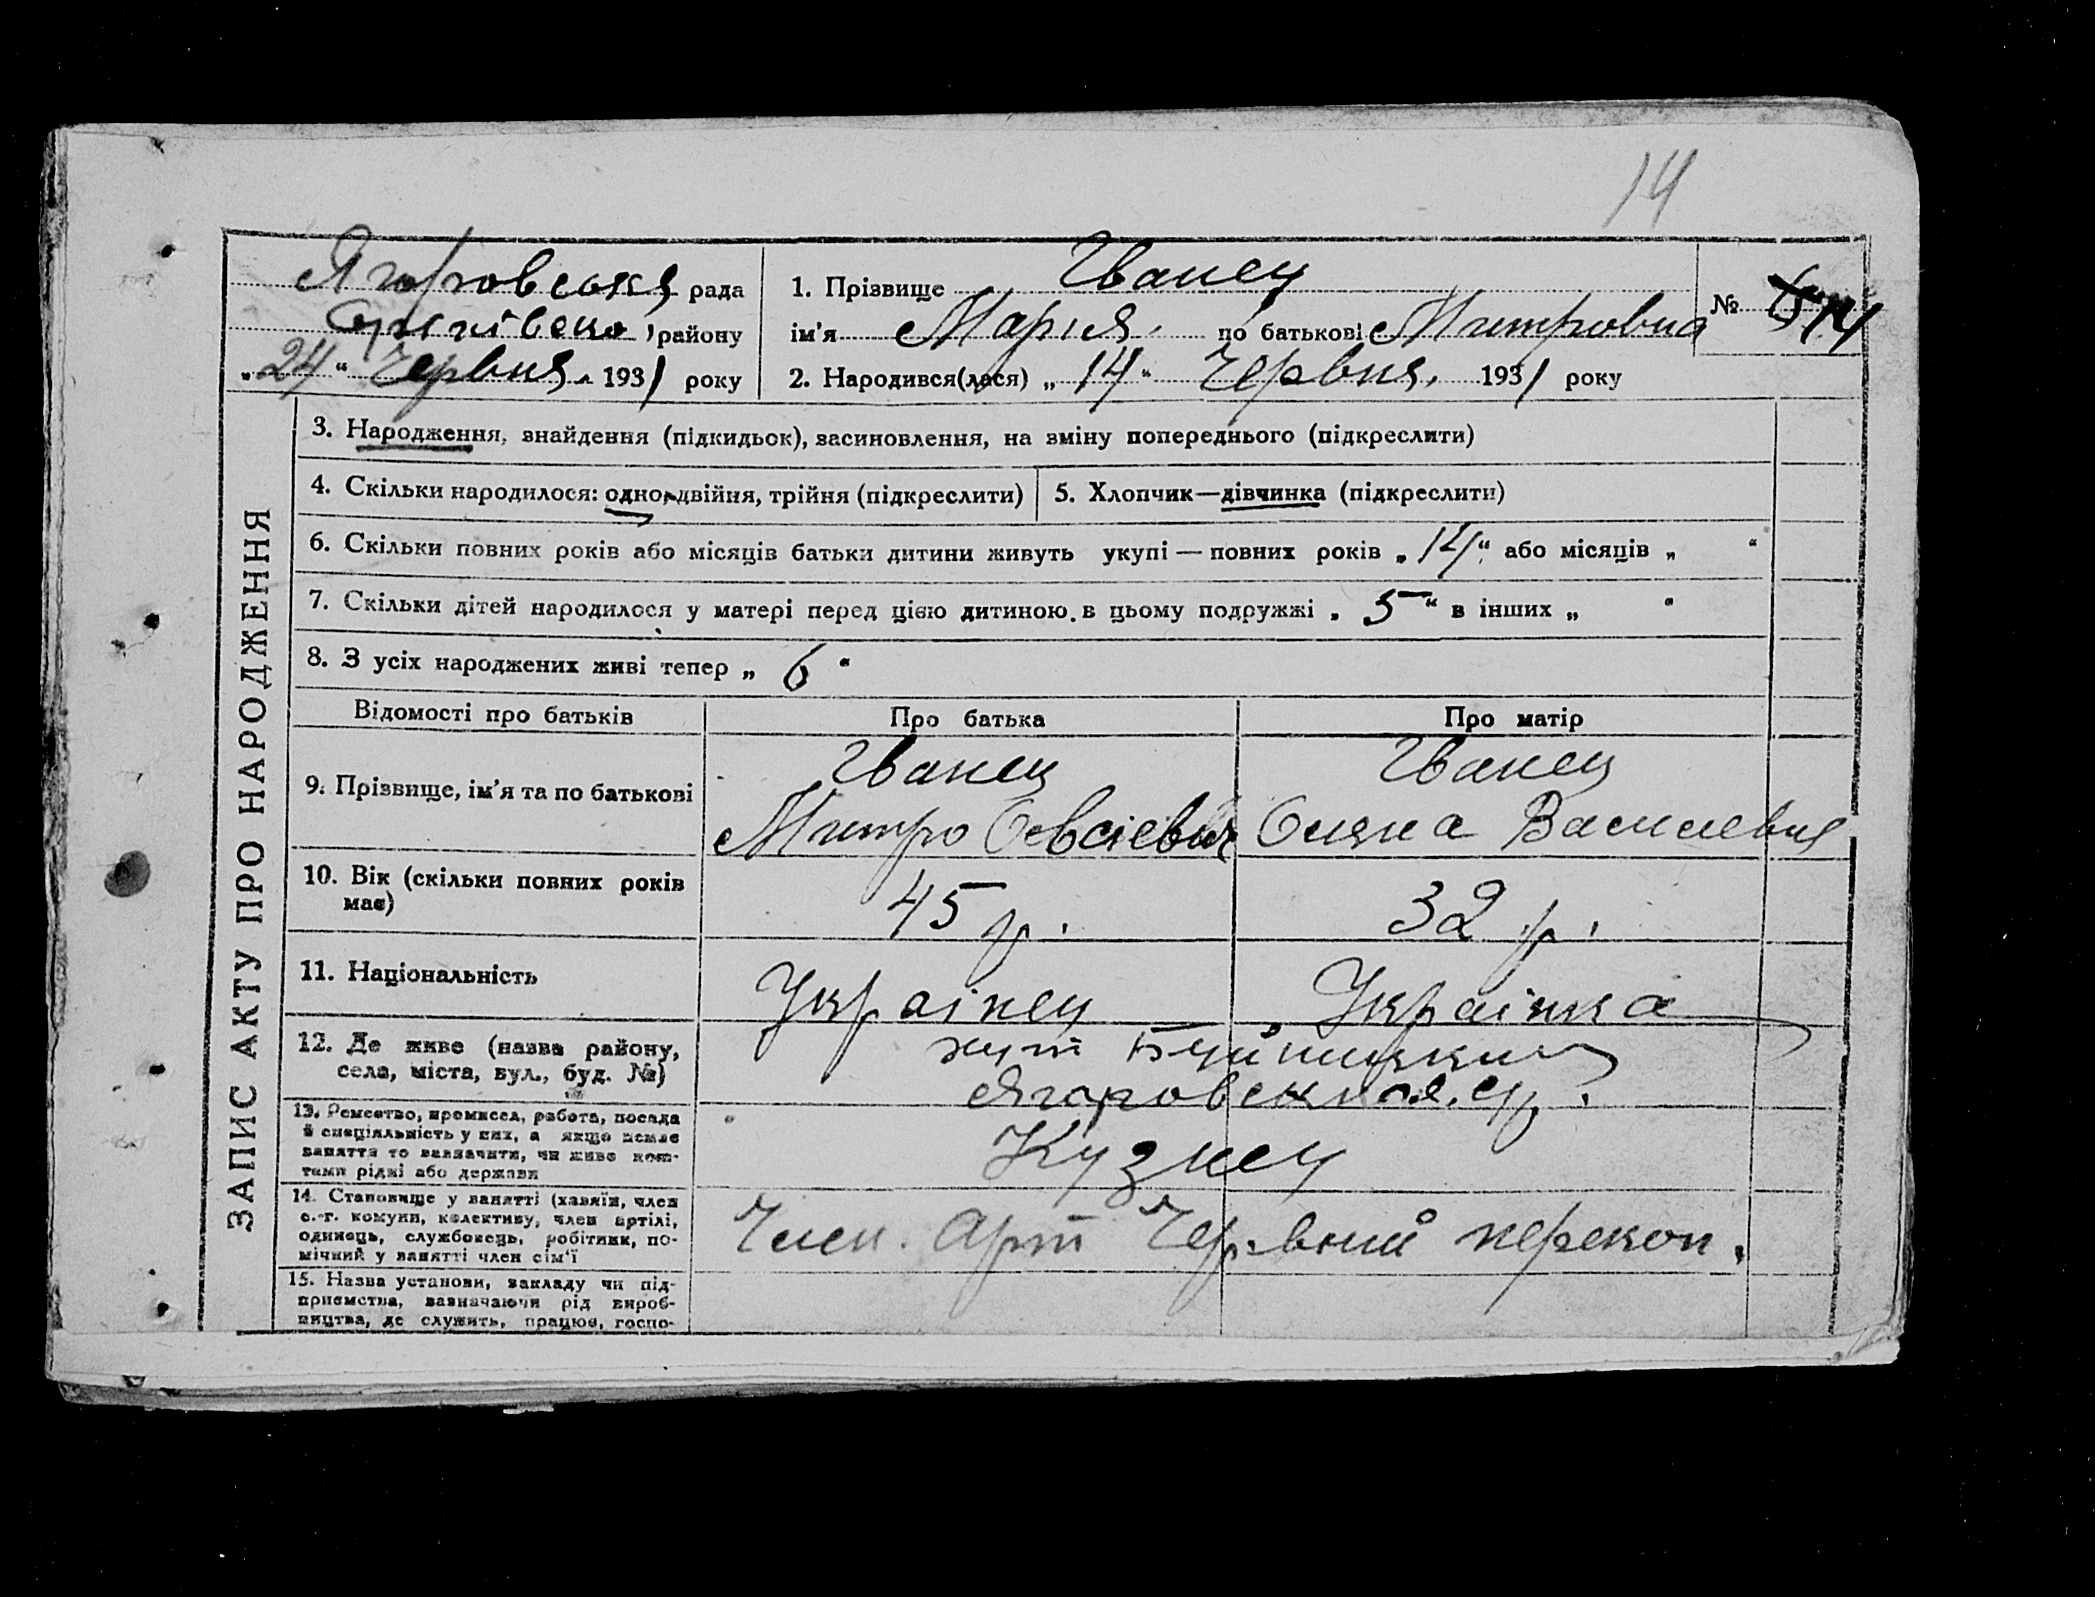 14
Ягоровська рада
району
„24“ Червня 1931 року
1. Прізвище Іванец
ім'я Марія по батькові Митровна
№ 14
2. Народився(лася) „14“ Червня 1931 року
ЗАПИС АКТУ ПРО НАРОДЖЕННЯ
3. Народження, знайдення (підкидьок), засиновлення, на зміну попереднього (підкреслити)
4. Скільки народилося: одно, двійня, трійня (підкреслити)
5. Хлопчик—дівчинка (підкреслити)
6. Скільки повних років або місяців батьки дитини живуть укупі — повних років „14“ або місяців „ “
7. Скільки дітей народилося у матері перед цією дитиною в цьому подружжі „5“ в інших „ “
8. З усіх народжених живі тепер „6“
Відомості про батьків
Про батька
Про матір
9. Прізвище, ім'я та по батькові
Іванец
Митро Овсієвич
Іванец
Василевна
10. Вік (скільки повних років
має)
45 р.
32 р.
11. Національність
Украінец
Украінка
12. Де живе (назва району,
села, міста, вул., буд. №)
хут
13. Ремество, промисел, робота, посада
й спеціяльність у них, а якщо немає
заняття то зазначити, чи живе кош-
тами рідні або держави
Кузнец
14. Становище у занятті (хазяїн, член
с.-г. комуни, колективу, член артілі,
одинець, службовець, робітник, по-
мічний у занятті член сім'ї
Член. Арт Червний перекоп.
15. Назва установи, закладу чи під-
приємства, зазначаючи рід вироб-
ництва, де служить, працює, госпо-